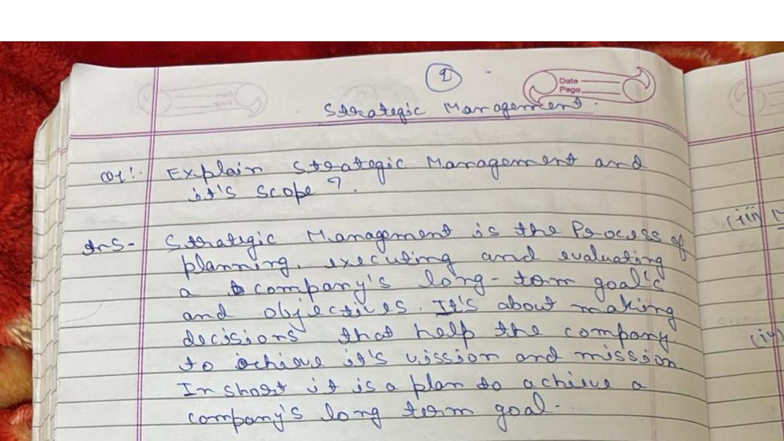 1
Date
Page
Strategic Management
Q1:- Explain Strategic Management and
it's scope ?
Ans- Strategic Management is the Process of
planning, executing and evaluating
a company's long-term goal's
and objectives. It's about making
decisions that help the company
to achieve it's vission and mission.
In short it is a plan to achieve a
company's long term goal.
(iii)
(iv)